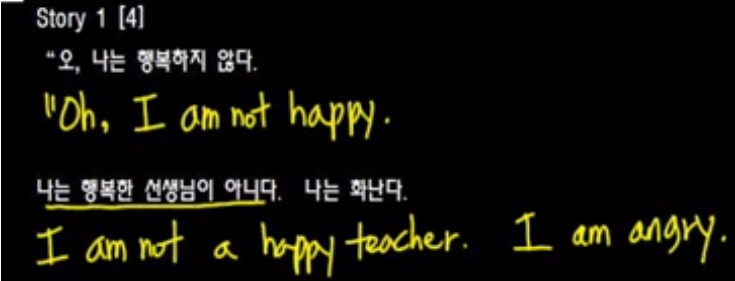 Story 1 [4]
“오, 나는 행복하지 않다.
"Oh, I am not happy.
나는 행복한 선생님이 아니다. 나는 화난다.
I am not a happy teacher. I am angry.